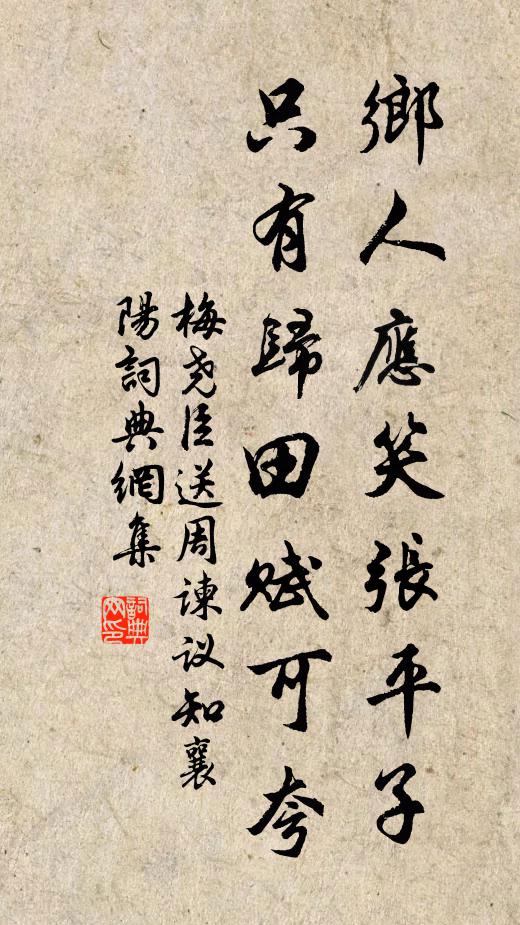 鄉人應笑張平子
只有歸田賦可夸
梅尧臣送周諫议知襄
陽詞典網集
詞典
网印